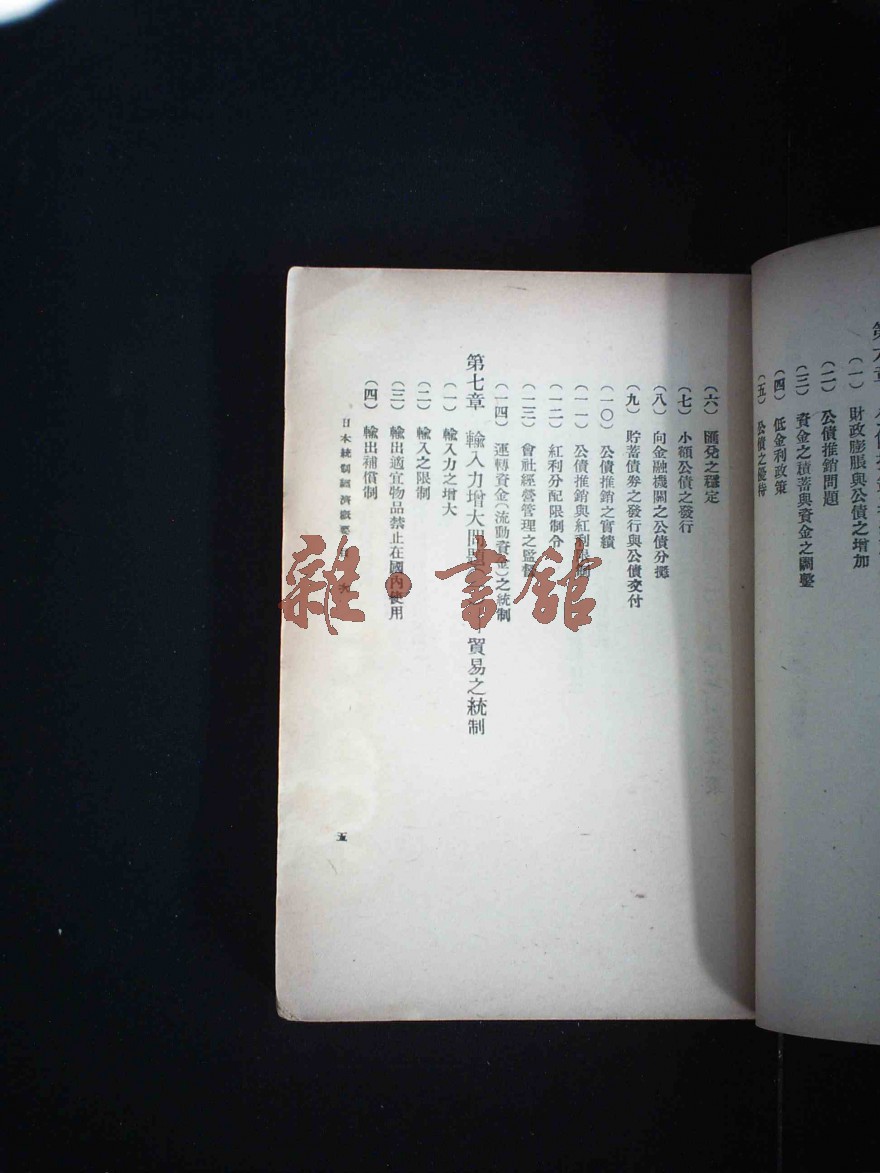 (一) 財政膨脹與公債之增加
(二) 公債推銷問題
(三) 資金之積蓄與資金之調整
(四) 低金利政策
(五) 公債之優待
(六) 匯兌之穩定
(七) 小額公債之發行
(八) 向金融機關之公債分攤
(九) 貯蓄債券之發行與公債交付
(一〇) 公債推銷之實績
(一一) 公債推銷與紅利
(一二) 紅利分配限制令
(一三) 會社經營管理之監督
(一四) 運轉資金(流動資金)之統制
第七章 輸入力增大問題 貿易之統制
(一) 輸入力之增大
(二) 輸入之限制
(三) 輸出適宜物品禁止在國內使用
(四) 輸出補償制
日本統制經濟概要
五
雜·書館